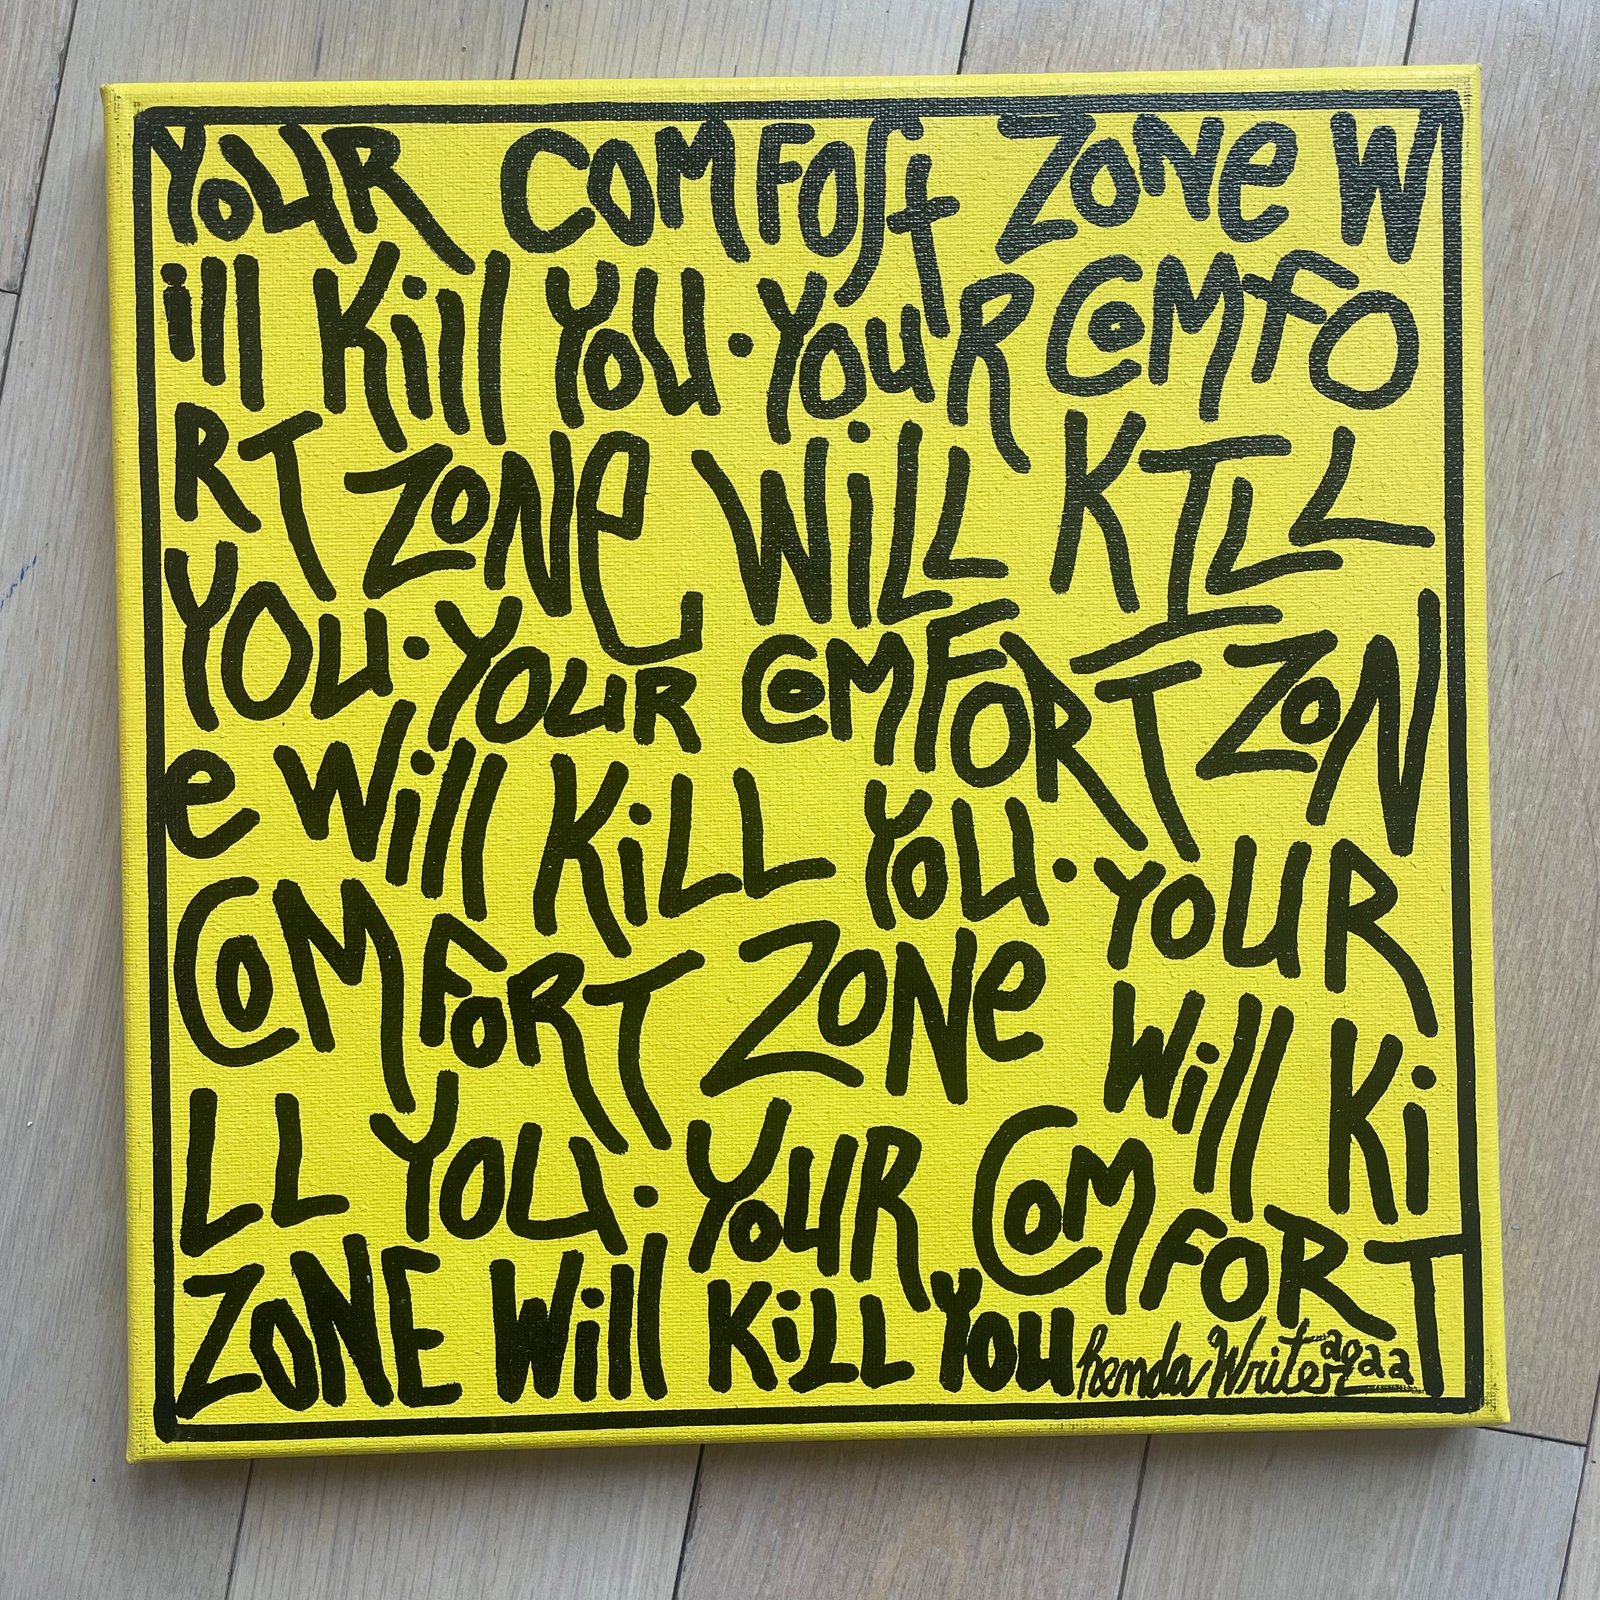 YouR COMFOrt ZONe W
ill Kill YOU • YouR COMFO
RT ZONe WiLL KILL
YOu • YOuR COMFORT ZON
e Will KiLL YOU • YOUR
COMFORT ZONe Will Ki
LL YOU • YOUR COMFORT
ZONE Will KiLL YOU Renda Writer 2022